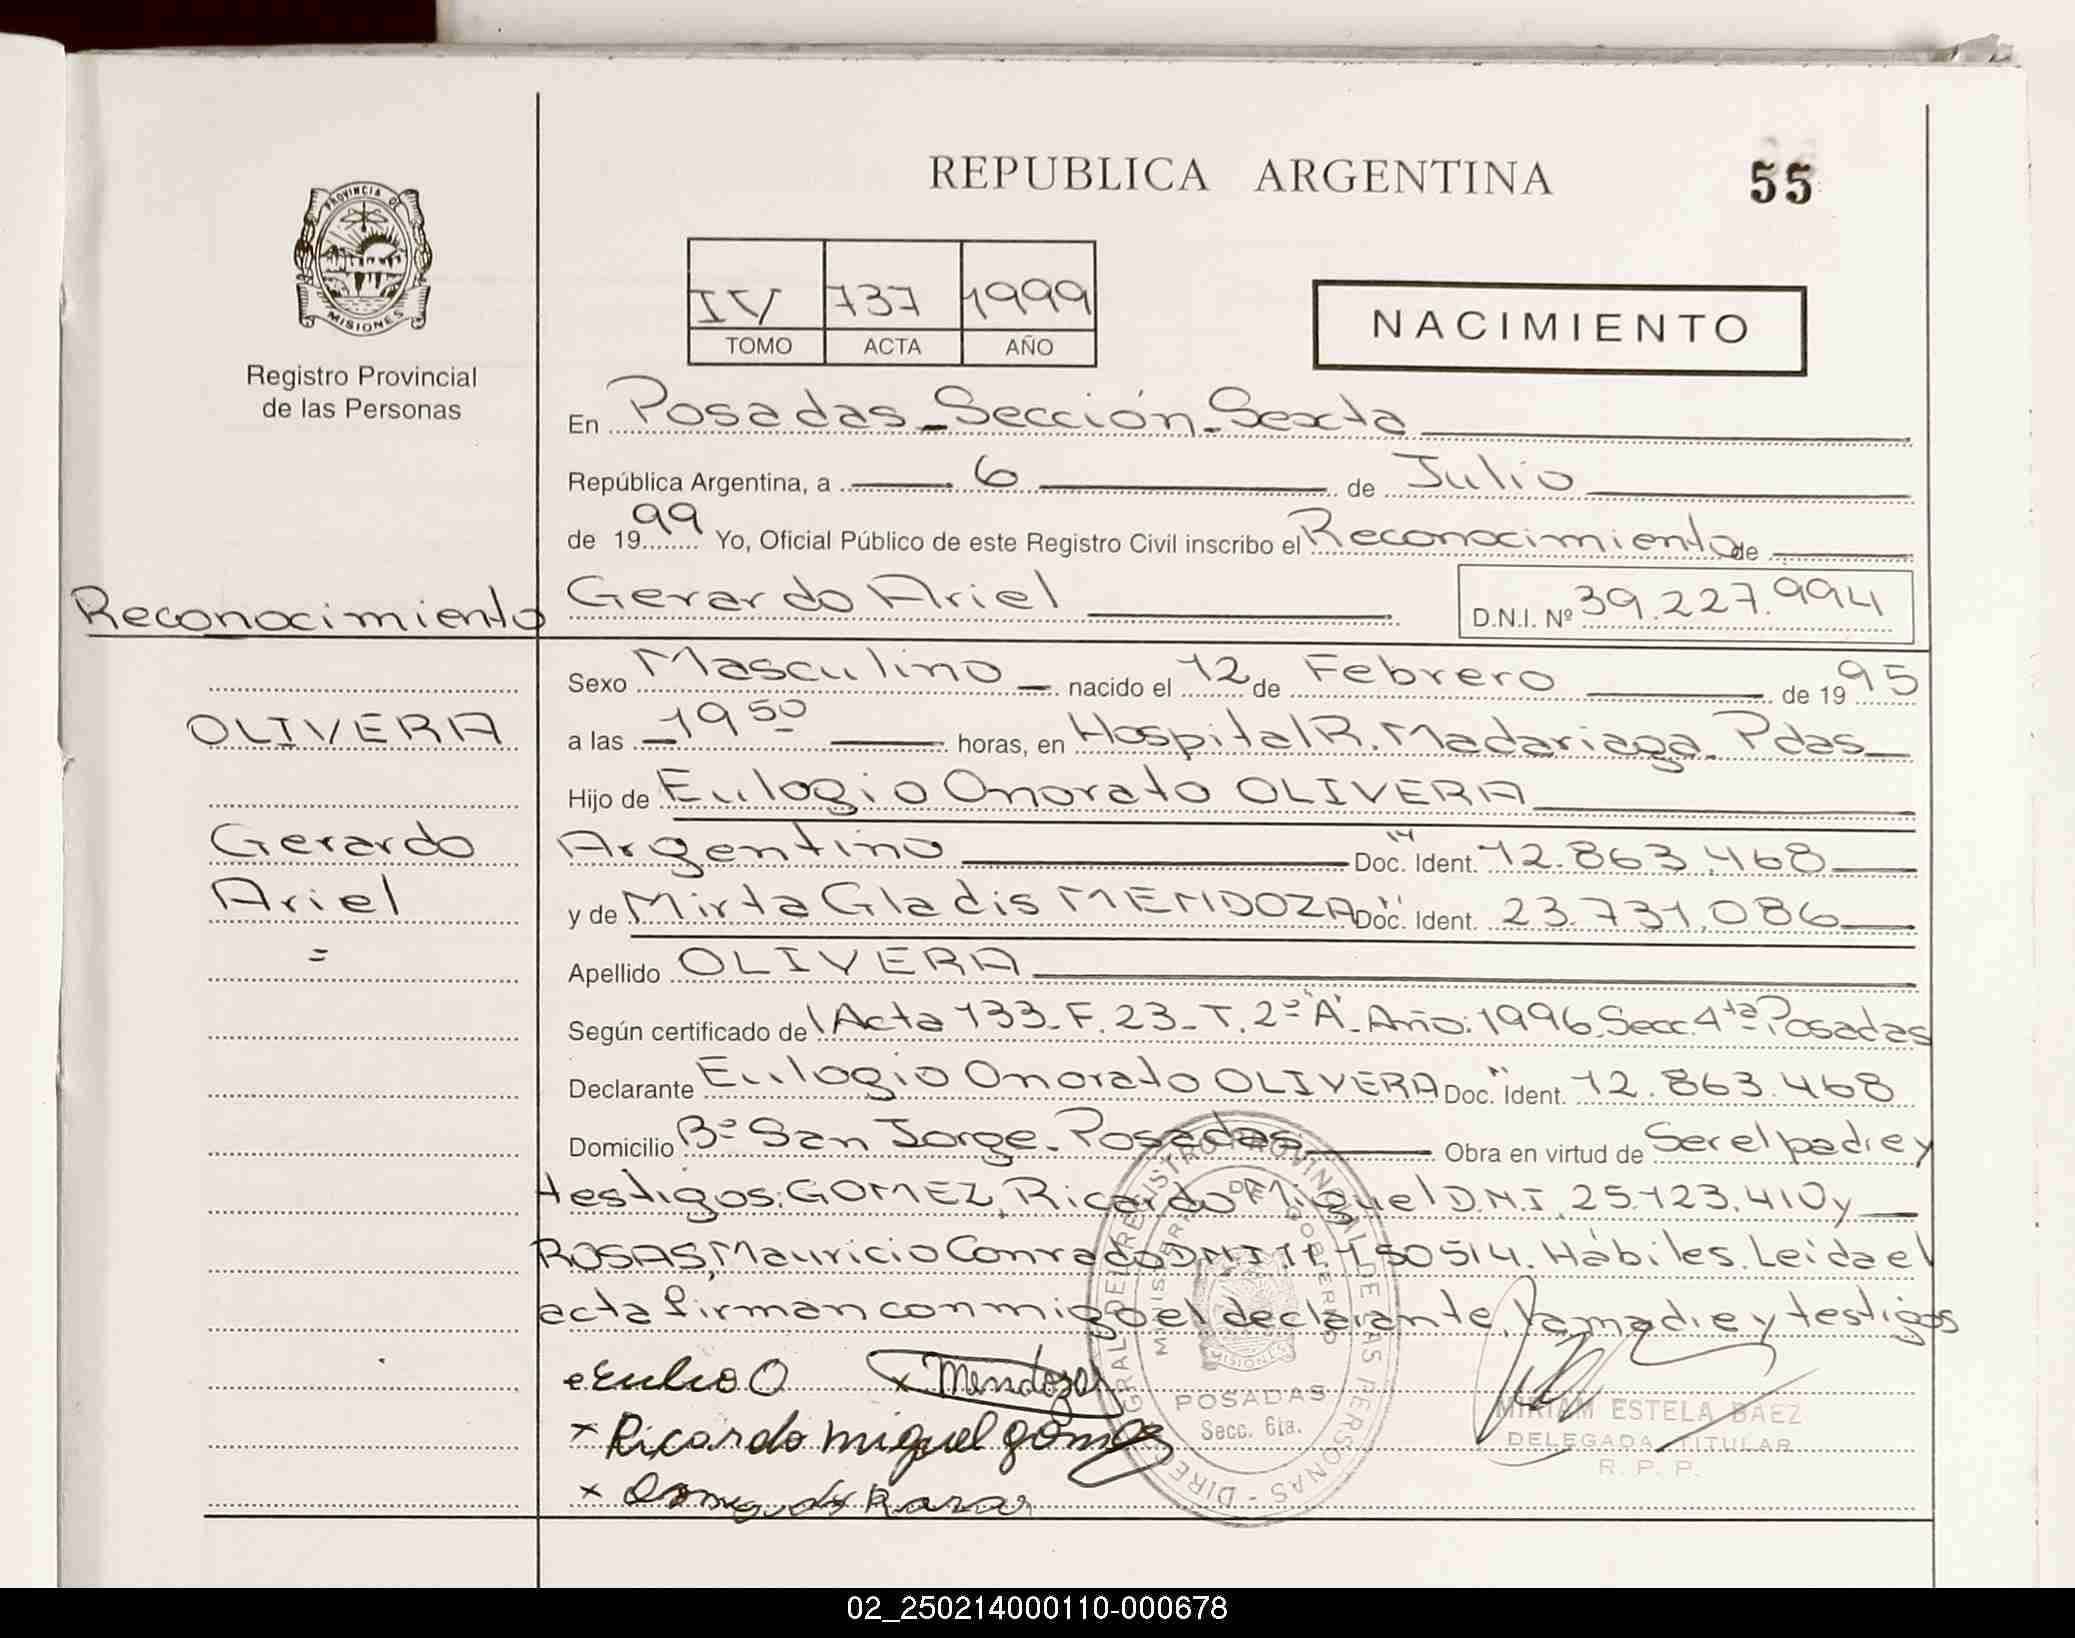 REPUBLICA ARGENTINA
55
PROVINCIA DE
MISIONES
Registro Provincial
de las Personas
IV 737 1999
TOMO ACTA AÑO
NACIMIENTO
En Posadas - Sección - Sexta
República Argentina, a 6 de Julio
de 1999 Yo, Oficial Público de este Registro Civil inscribo el Reconocimiento de
Gerardo Ariel D.N.I. Nº 39.227.994
Reconocimiento
OLIVERA
Gerardo
Ariel
=
Sexo Masculino nacido el 12 de Febrero de 1995
a las 19 50 horas, en Hospital R. Madariaga. Pdas
Hijo de Eulogio Onorato OLIVERA
Argentino Doc. Ident. 12.863.468
y de Mirta Gladis MENDOZA Doc. Ident. 23.731.086
Apellido OLIVERA
Según certificado del Acta 133_F. 23_T. 2º "A". Año: 1996. Secc. 4ta. Posadas
Declarante Eulogio Onorato OLIVERA Doc. Ident. 12.863.468
Domicilio Bº San Jorge. Posadas Obra en virtud de Ser el padre y
testigos: GOMEZ, Ricardo Miguel D.N.I. 25.123.410 y
ROSAS, Mauricio Conrado DNI 150514. Hábiles. Leida el
acta firman conmigo el declarante, la madre y testigos
x Mendoza
x Ricardo miguel gomez
x
DIREC GRAL DEL REGISTRO PROVINCIAL DE LAS PERSONAS -
MINISTERIO DE GOBIERNO
MISIONES
POSADAS
Secc. 6ta.
MIRIAM ESTELA BAEZ
DELEGADA TITULAR
R. P. P.
02_250214000110-000678